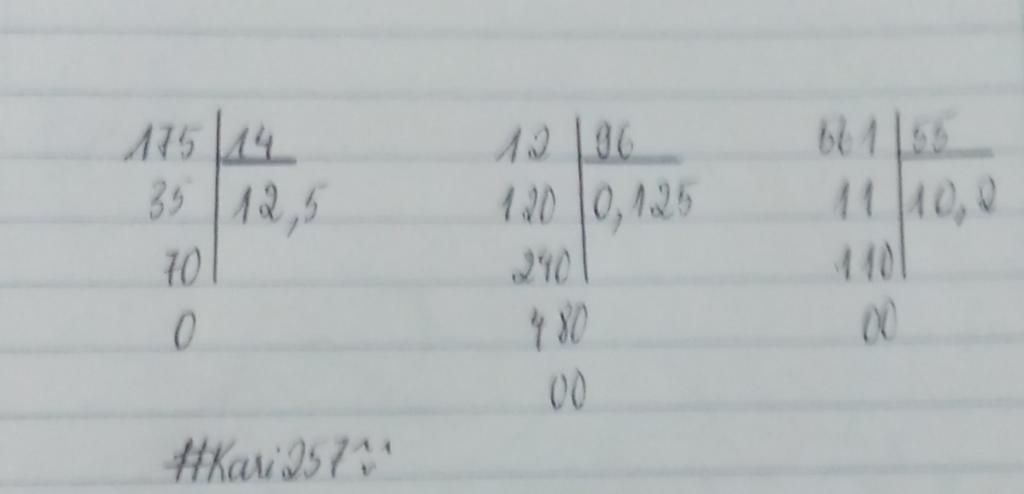 175 14 12 96 561 55
35 12,5 120 0,125 11 10,2
70 240 110
0 480 00
00
#Kari257